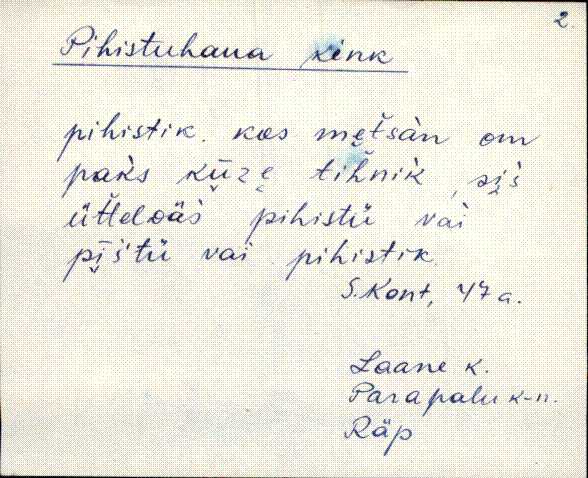 2.
Pihistuhaua kink
pihistik. kos mẹtšàn om
paks kū̬zẹ tihnik, si̬i̬s
üteldäs pihistü vai
pī̬stü vai pihistik.
S. Kont, 47 a.
Laane k.
Parapalu k-n.
Räp